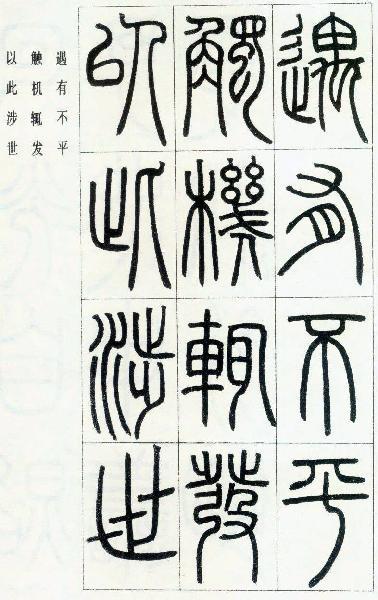 遇有不平
觸機輒發
以此涉世
遇有不平
触机辄发
以此涉世